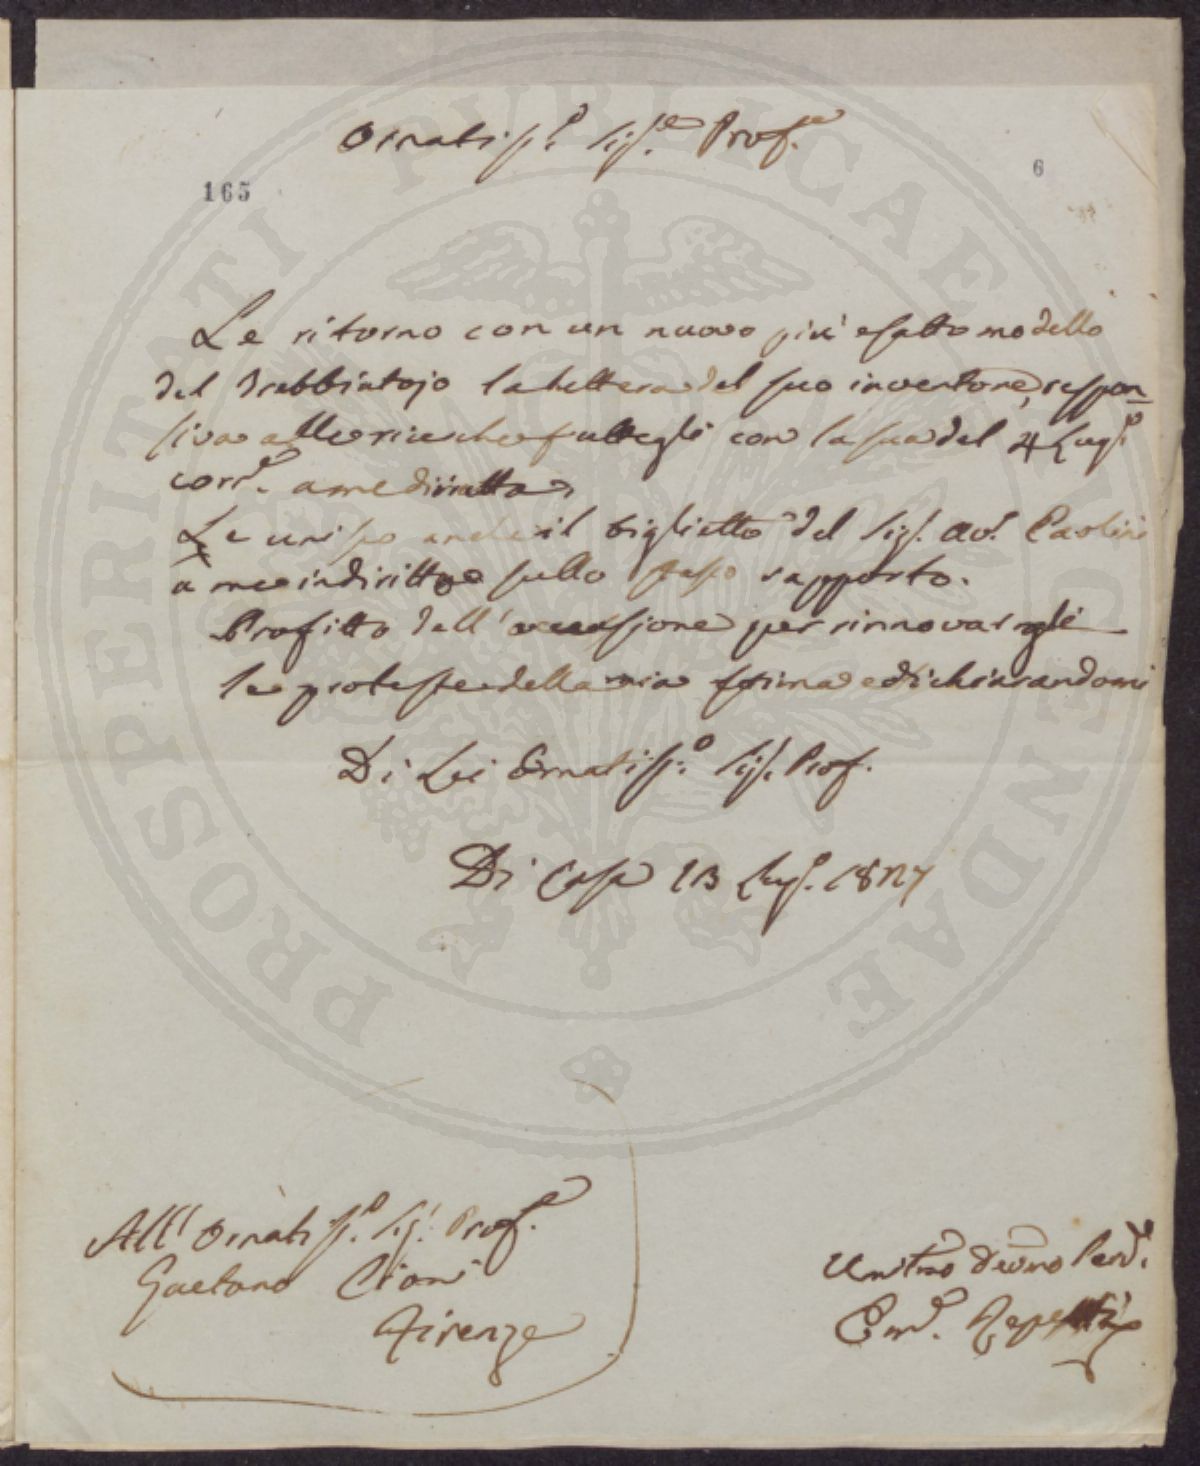 Ornatiss.o Sig.e Prof.e
165
6
Le ritorno con un nuovo più esatto modello
del Trebbiatojo la lettera del suo inventore, respon-
siva alle ricerche fattegli con la sua del 4 Lug.o
corr.e a me diretta
Le unisco anche il biglietto del Sig. Av. Paolini
a me indiritto sullo stesso rapporto.
Profitto dell'occasione per rinnovargli
le proteste della mia stima e dichiarandomi
Di Lei Ornatiss.o Sig. Prof.
Di Casa 13 Lug. 1827
All' Ornatiss.o Sig. Prof.e
Gaetano Cioni
Firenze
Umilmo Devmo Serv.
Em.e Repetti
PROSPERITATI PUBLICAE AUGENDAE